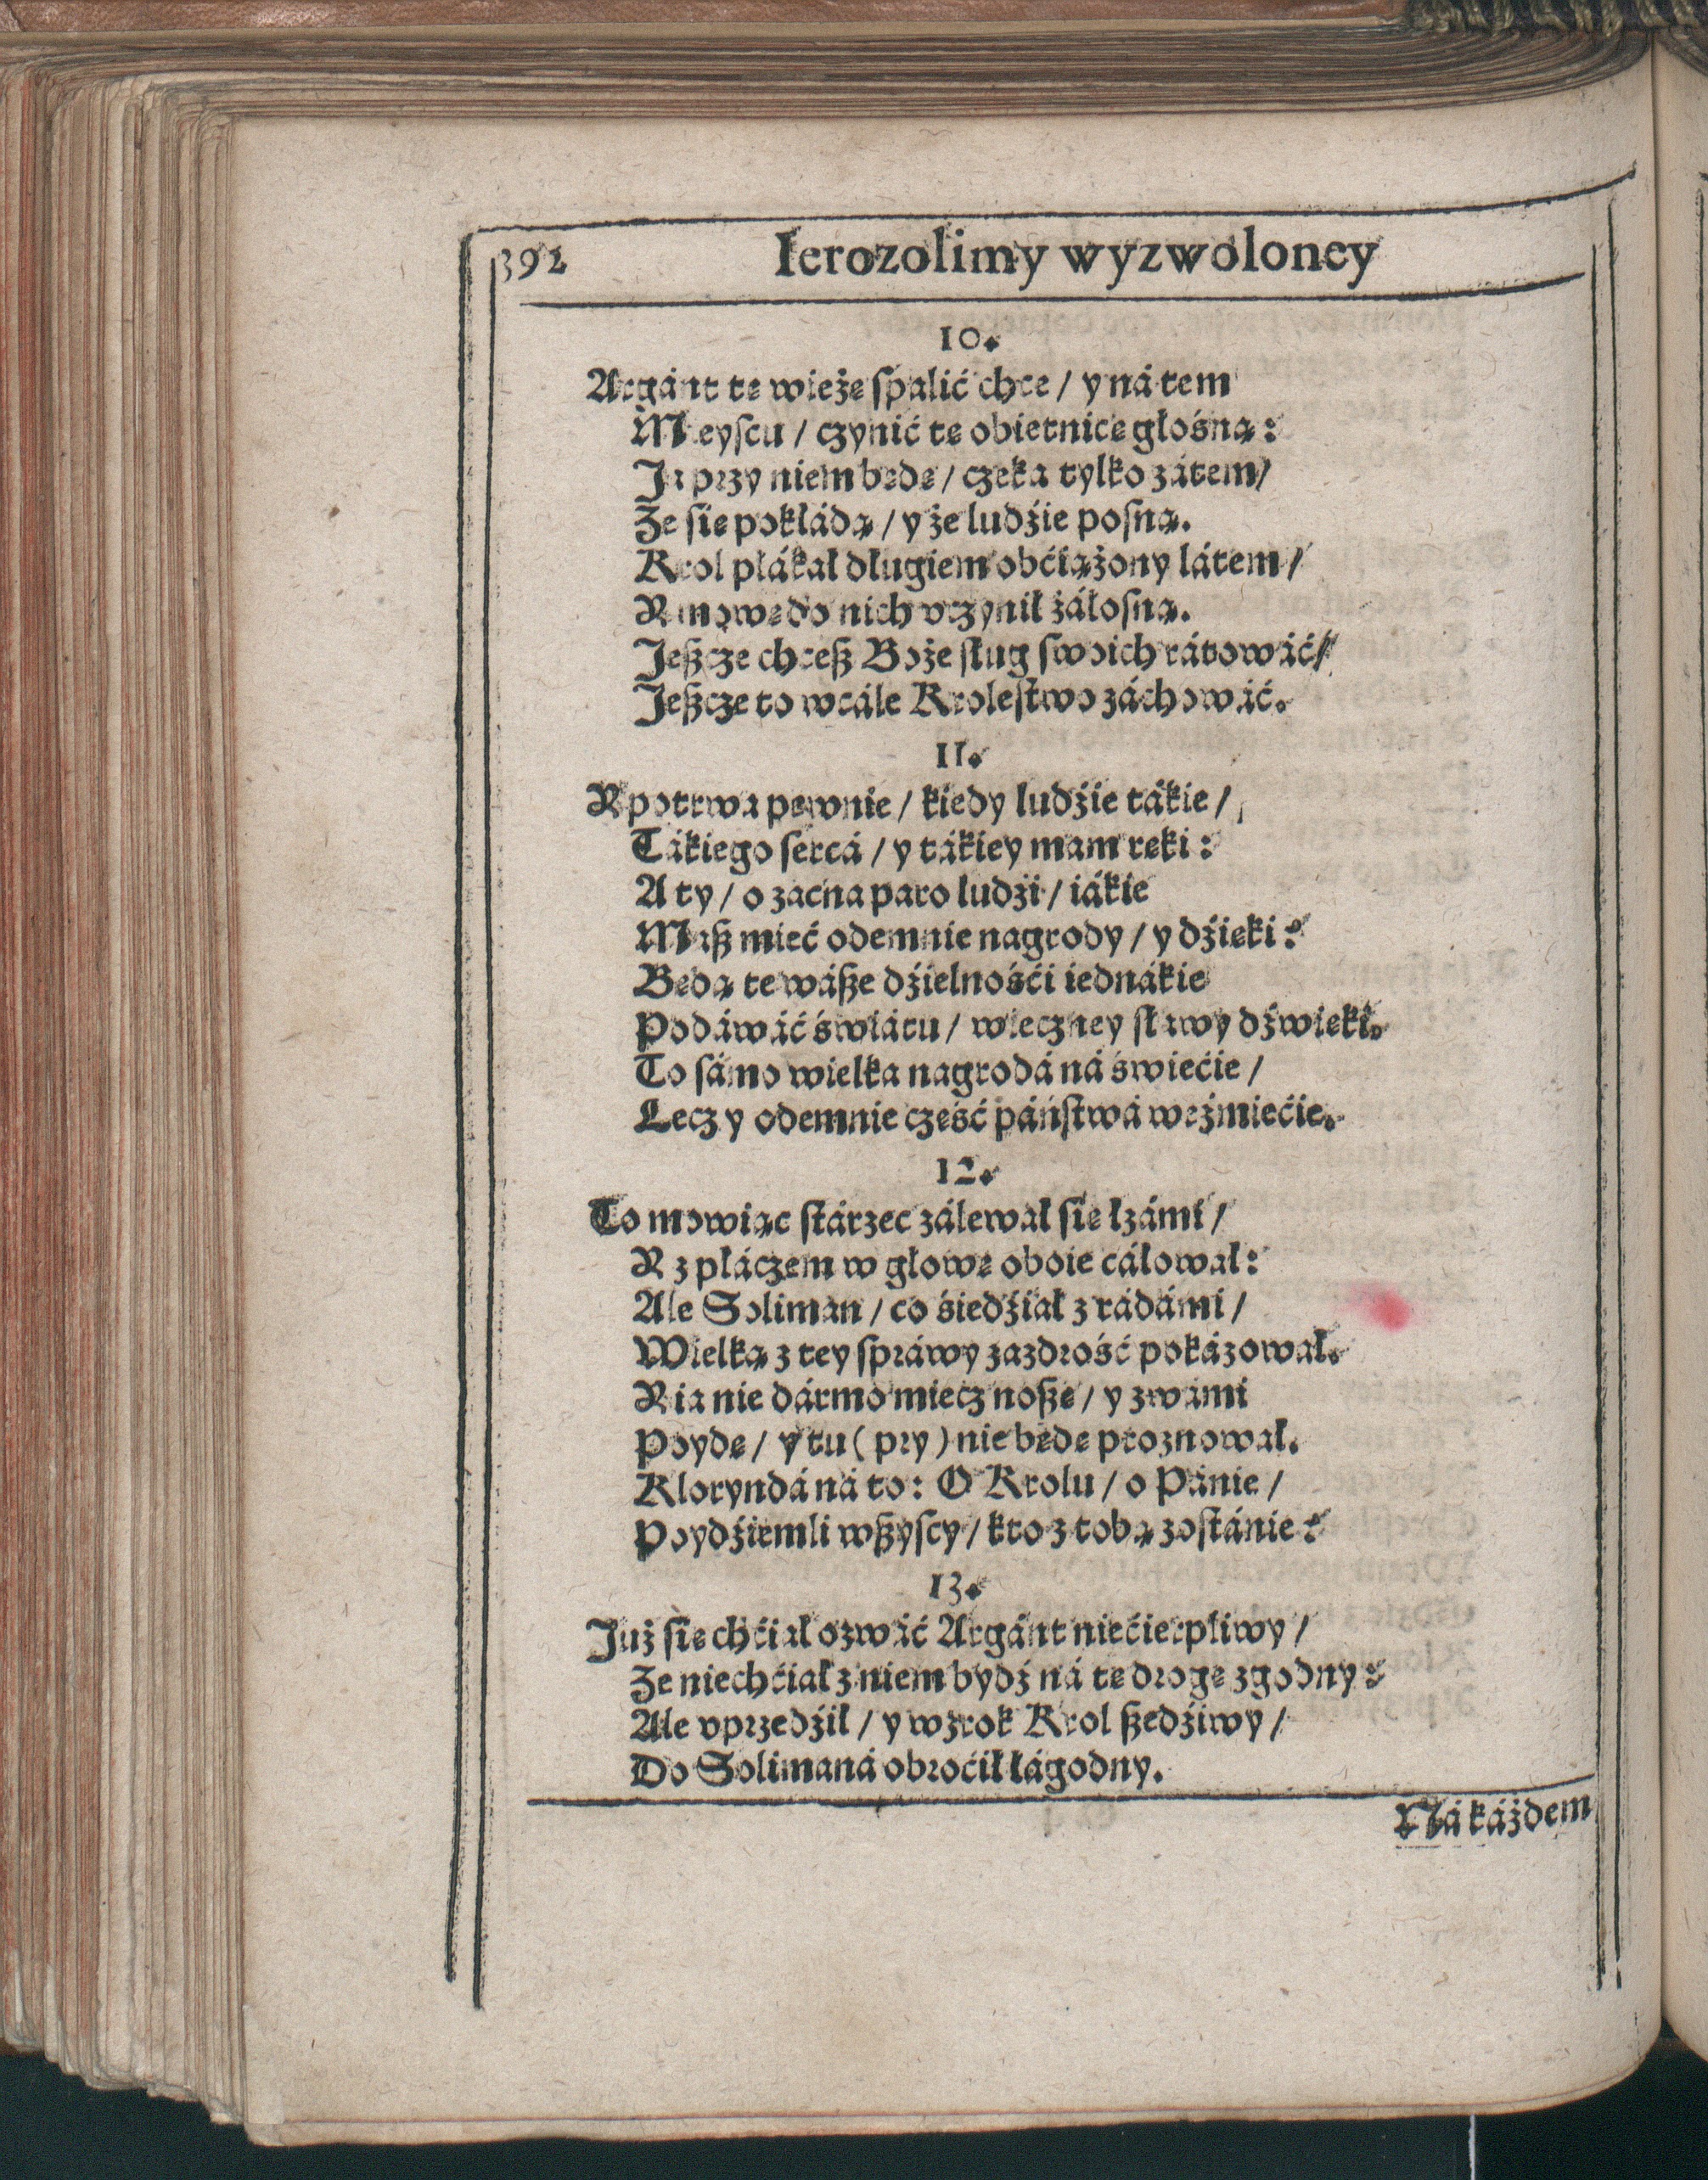 392
Ierozolimy wyzwoloney
10.
Argánt tę wieżę spalić chce / y ná tem
Mieyscu / czynić tę obietnicę głośną:
Ja przy niem będę / czeka tylko zátem /
Że się pokłádą / y że ludźie posną.
Krol płákał długiem obćiążony látem /
Y mowę do nich vczynił żáłosną.
Jeszcze chcesz Boże sług swoich rátowáć /
Jeszcze to wcále Krolestwo záchowáć.
11.
Y potrwa pewnie / kiedy ludźie tákie /
Tákiego sercá / y tákiey mam ręki:
A ty / o zacna paro ludźi / iákie
Masz mieć odemnie nagrody / y dźięki?
Będą te wásze dźielnośći iednákie
Podáwáć świátu / wieczney sławy dźwięki.
To sámo wielka nagrodá ná świećie /
Lecz y odemnie część páństwá weźmiećie.
12.
To mowiąc stárzec zálewał się łzámi /
Y z płáczem w głowę oboie cáłował:
Ale Soliman / co śiedźiał z rádámi /
Wielką z tey spráwy zazdrość pokázował.
Y ia nie dármo miecz noszę / y z wámi
Poydę / y tu ( pry ) nie będę proznował.
Kloryndá ná to: O Krolu / o Pánie /
Poydźiemli wszyscy / kto z tobą zostánie?
13.
Już się chćiał ozwáć Argánt niećierpliwy /
Że niechćiał z niem bydź ná tę drogę zgodny:
Ale vprzedźił / y wzrok Krol szedźiwy /
Do Solimaná obroćił łágodny.
Ná káżdem